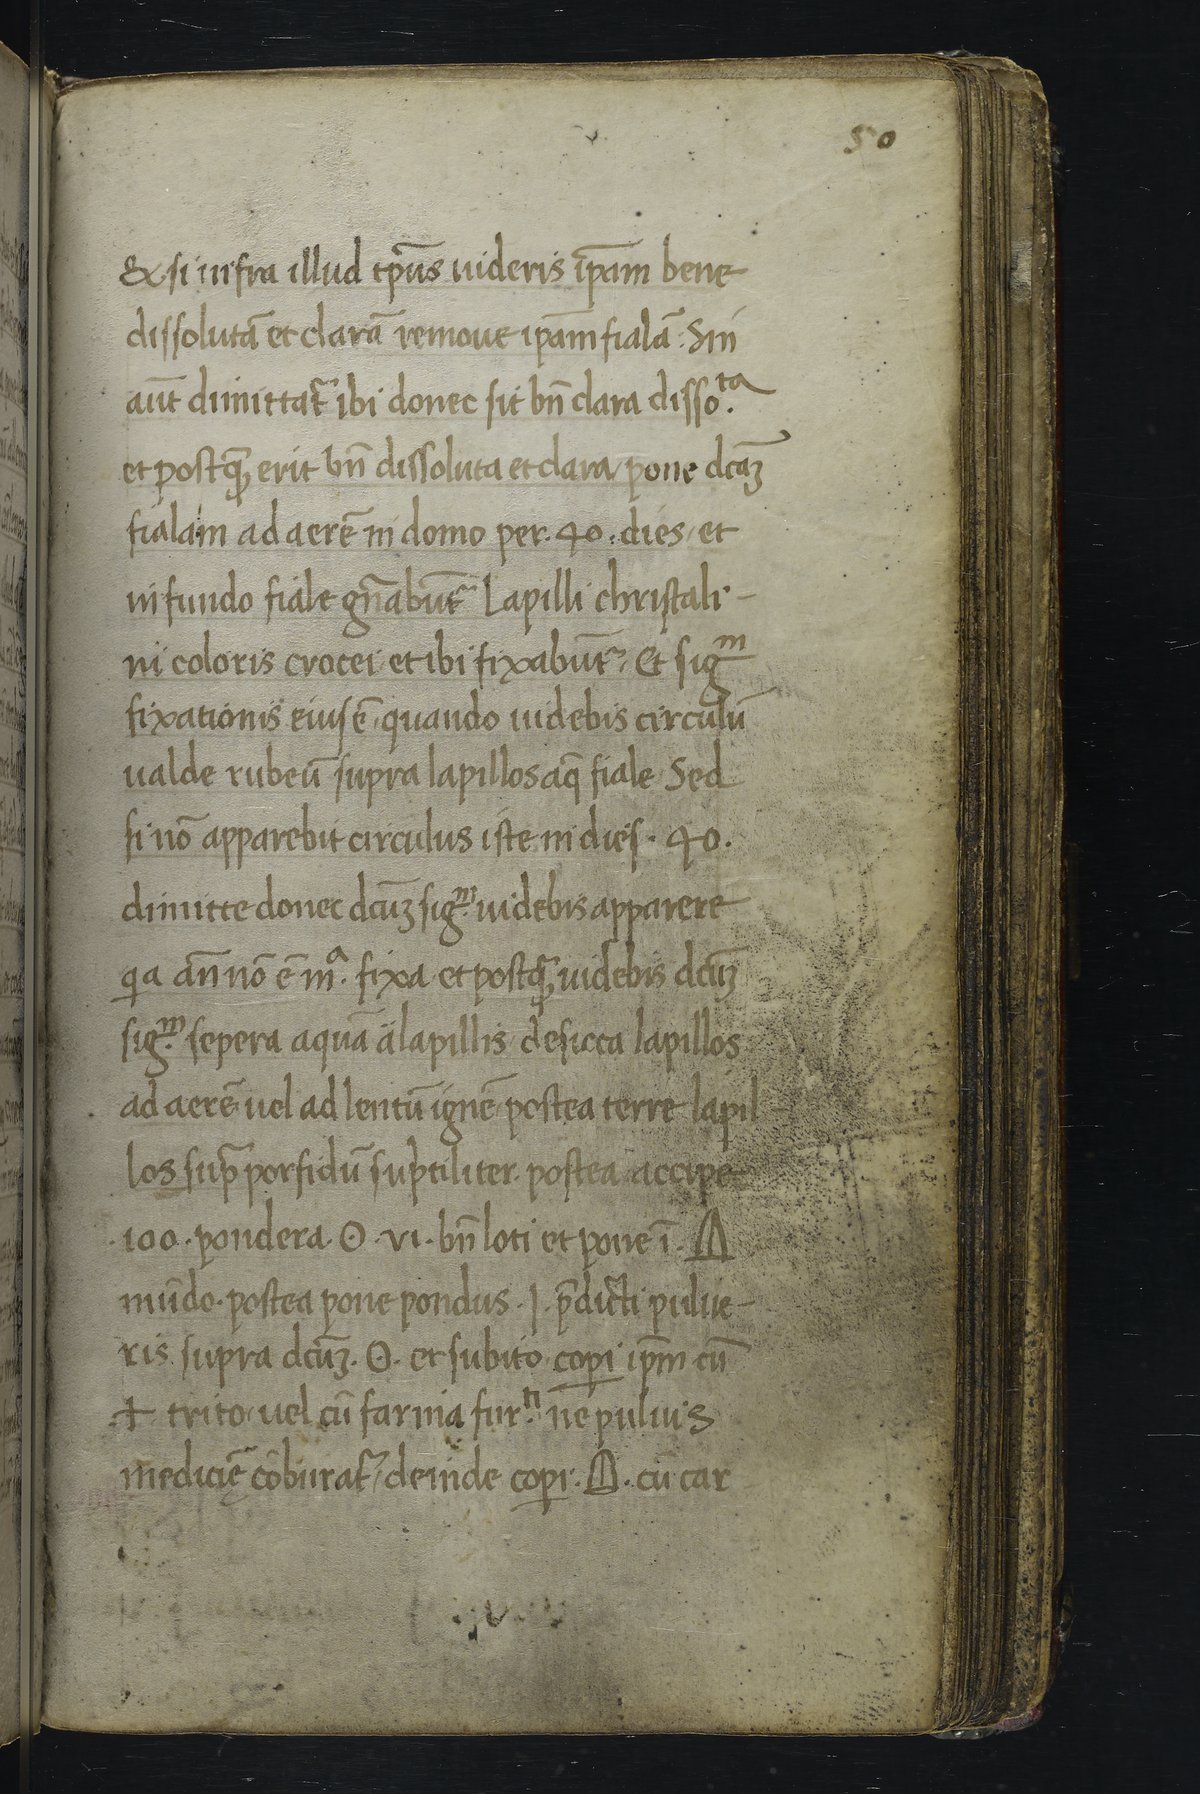 50
Et si infra illud tp̄us uideris ip̄am bene
dissolutā et clarā remoue ip̄am fialā. Sin
aūt dimittat̄ ibi donec sit bn̄ clara disso.ta
et postq̄ erit bn̄ dissoluta et clara pone dcāʒ
fialam ad aerē in domo per .40. dies, et
in fundo fiale gn̄abūt̄ Lapilli christali-
ni coloris crocei et ibi fixabūt̄, Et sigm
fixationis eius ē quando uidebis circulū
ualde rubeū supra lapillos aq̄ fiale Sed
si nō apparebit circulus iste in dies. 40.
dimitte donec dcūʒ sig.m uidebis apparere
qia an̄ nō ē m.a fixa et postq̄ uidebis dcūʒ
sig.m sepera aquā a lapillis desicca lapillos
ad aerē uel ad lentū ignē postea terre lapil
los sup̄ porfidū suptiliter. postea accipe
.100. pondera ☉ .vi. bn̄ loti et pone ī.
mūdo. postea pone pondus .j. p̄dicti pulue-
ris supra dcūʒ. ☉. et subito cop̱i ip̄m cū
trito uel cū farina fur.n ne puluis
medicinę cōburat̄, deinde cop̱i. cū car